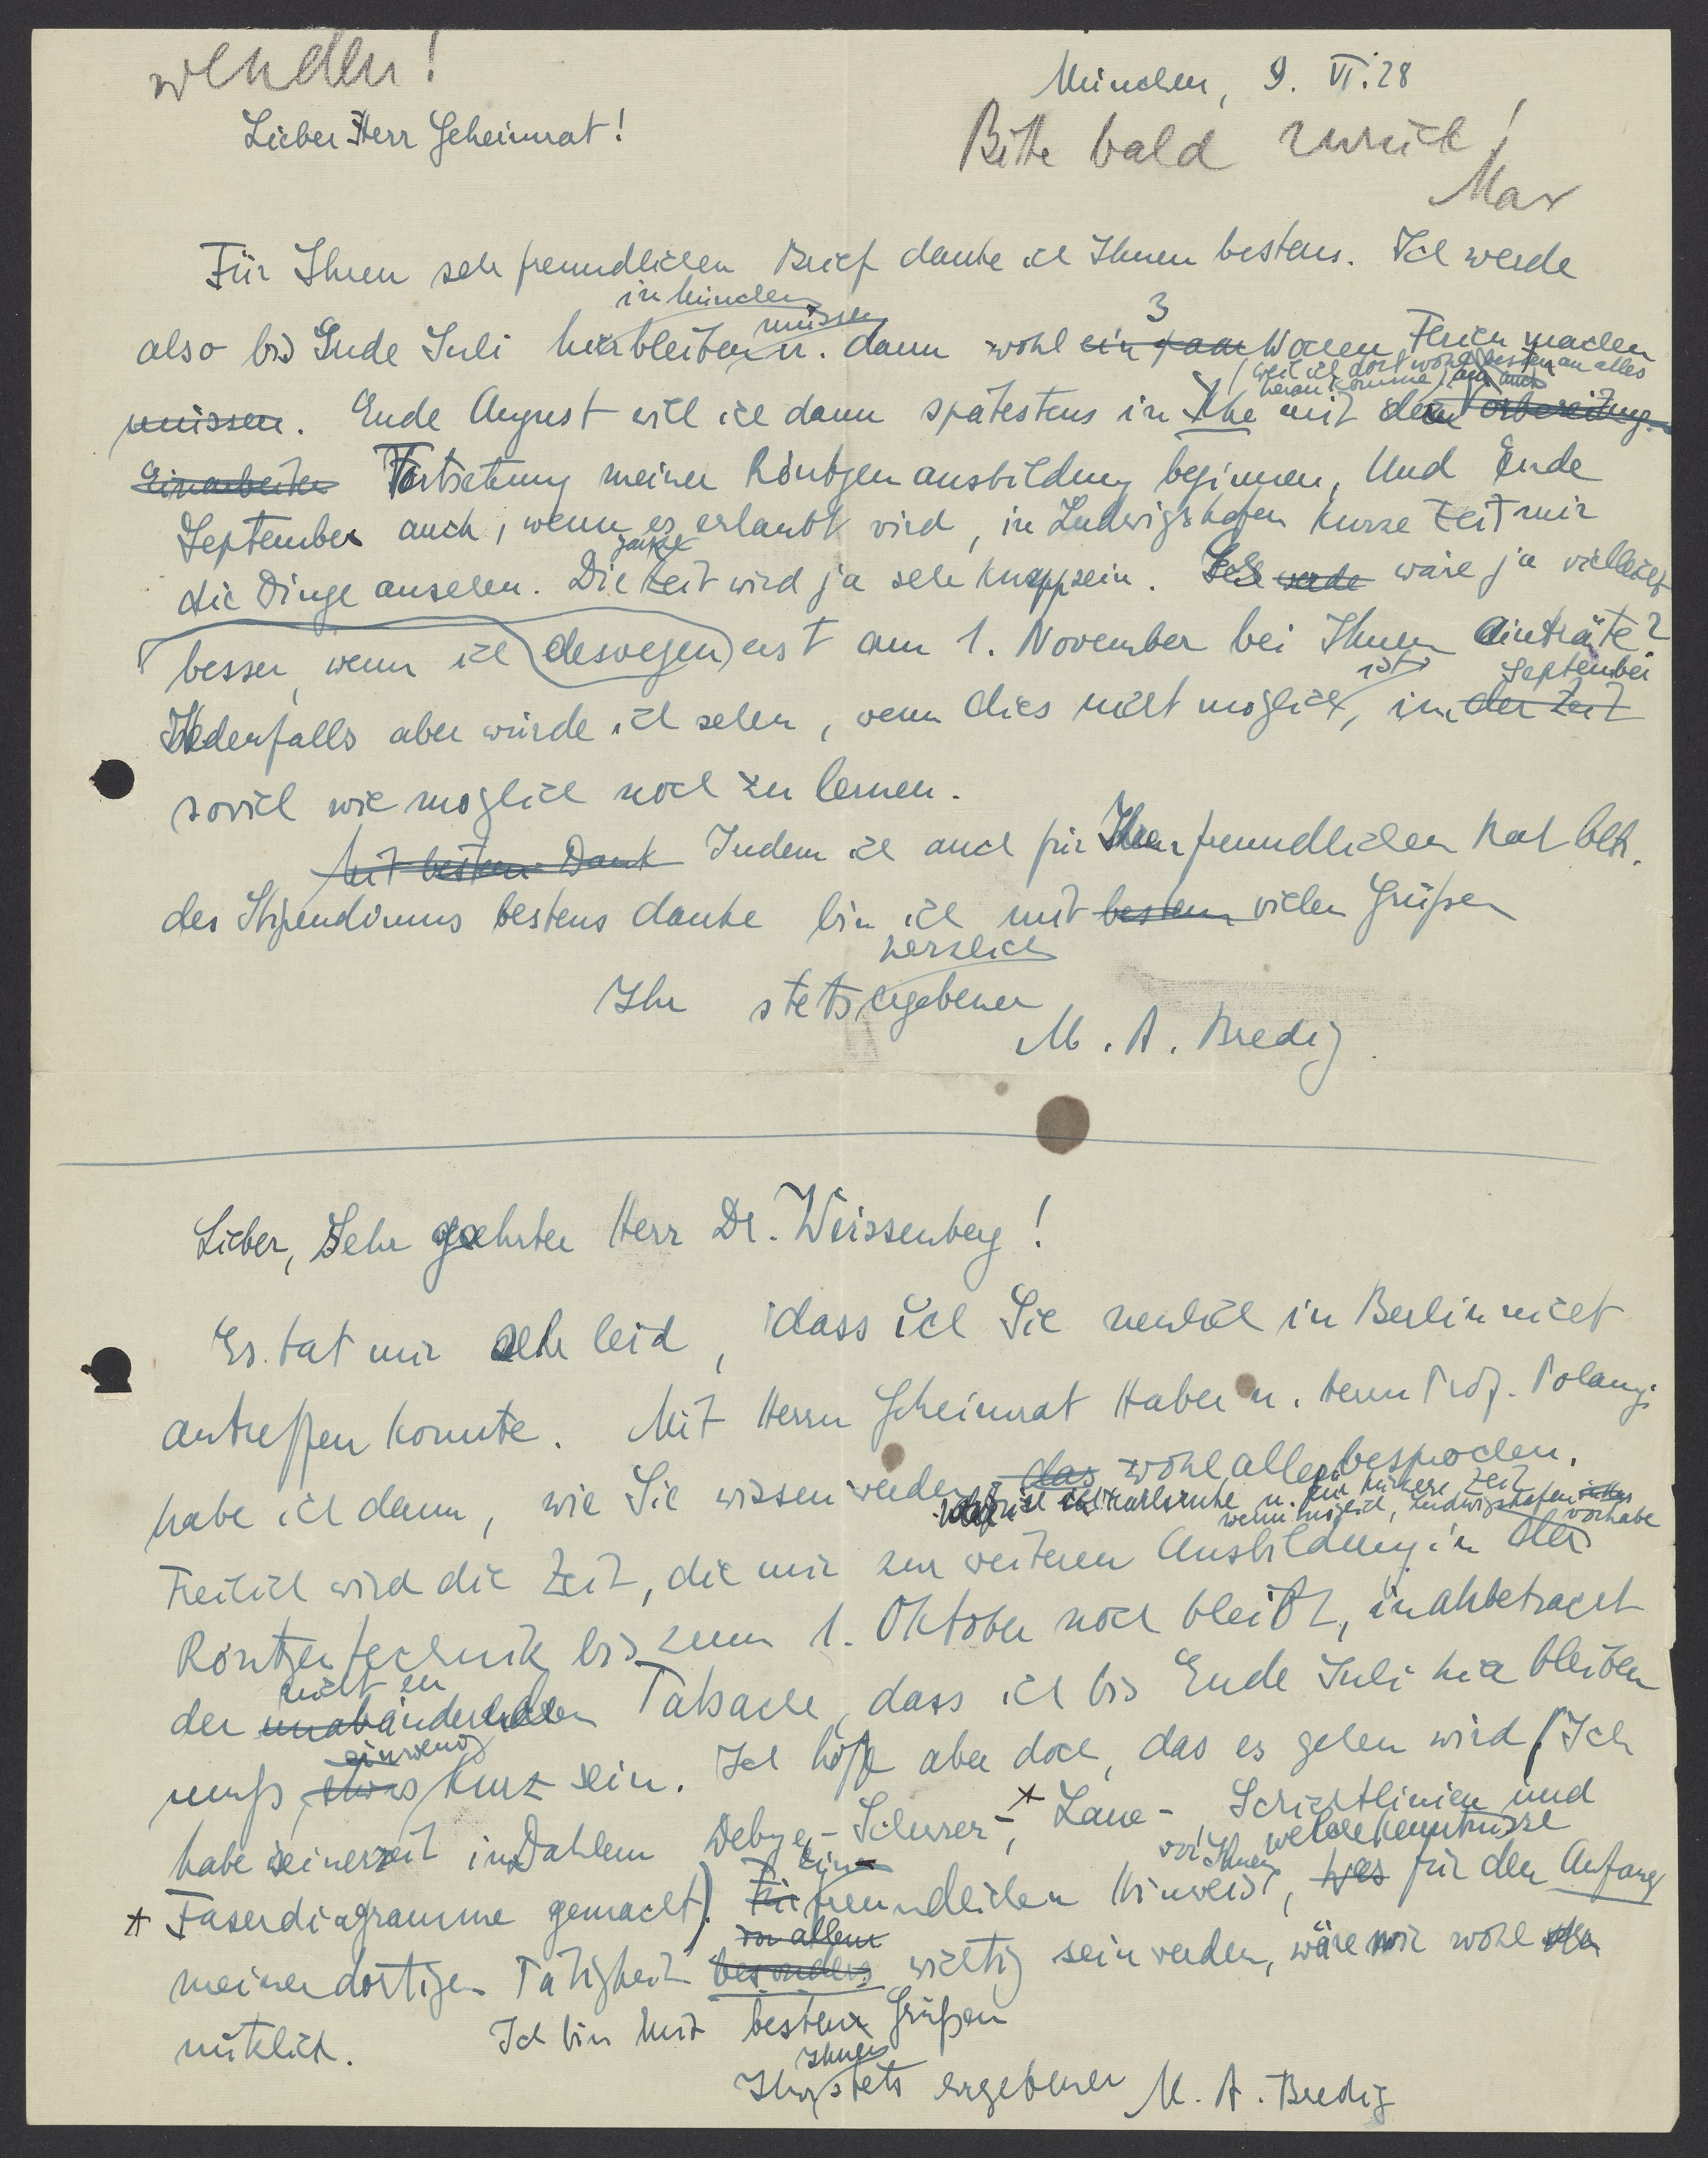 wenden!
München, 9. VI. 28
Lieber Herr Geheimrat!
Bitte bald zurück!
Max
Für Ihren sehr freundlichen Brief danke ich Ihnen bestens. Ich werde
in München
müssen
3
also bis Ende Juli hierbleiben u. dann wohl ein paar Wochen Ferien machen
(weil ich dort wohl besten an alles
heran komme) auch
müssen. Ende August will ich dann spätestens in Khe mit der Vorbereitung
Einarbeiten Fortsetzung meiner Röntgenausbildung beginnen, Und Ende
September auch, wenn es erlaubt wird, in Ludwigshafen kurze Zeit mir
ganze
die Dinge ansehen. Die Zeit wird ja sehr knapp sein. Ich werde wäre ja vielleicht
besser, wenn ich deswegen erst am 1. November bei Ihnen einträte?
ist
September
Jedenfalls aber würde ich sehen, wenn dies nicht möglich, im der Zeit
soviel wie möglich noch zu lernen.
Mit bestem Dank Indem ich auch für Ihren freundlichen Rat betr.
des Stipendiums bestens danke bin ich mit bestem vielen Grüßen
herzlich
Ihr stets ergebener
M. A. Bredig.
Lieber, Sehr geehrter Herr Dr. Weissenberg!
Es tat mir sehr leid, dass ich Sie neulich in Berlin nicht
antreffen konnte. Mit Herrn Geheimrat Haber u. Herrn Prof. Polanyi
habe ich dann, wie Sie wissen werden, das wohl alles besprochen.
ich Karlsruhe u. für kürzere Zeit
wenn möglich, Ludwigshafen vorhabe
Freilich wird die Zeit, die mir zur weiteren Ausbildung in der
Röntgentechnik bis zum 1. Oktober noch bleibt, in anbetracht
nicht zu
der unabänderlichen Tatsache, dass ich bis Ende Juli hier bleiben
ein wenig
muß, etwas kurz sein. Ich hoffe aber doch, das es gehen wird (Ich
habe seinerzeit in Dahlem Debye-Scherrer-,* Laue-, Schichtlinien und
von Ihnen welche Kenntnisse
Ein
* Faserdiagramme gemacht). freundlichen Hinweis, was für den Anfang
vor allem
meiner dortigen Tätigkeit besonders wichtig sein werden, wäre mir wohl
nützlich. Ich bin mit besten Grüßen
Ihnen
Ihr stets ergebener M. A. Bredig